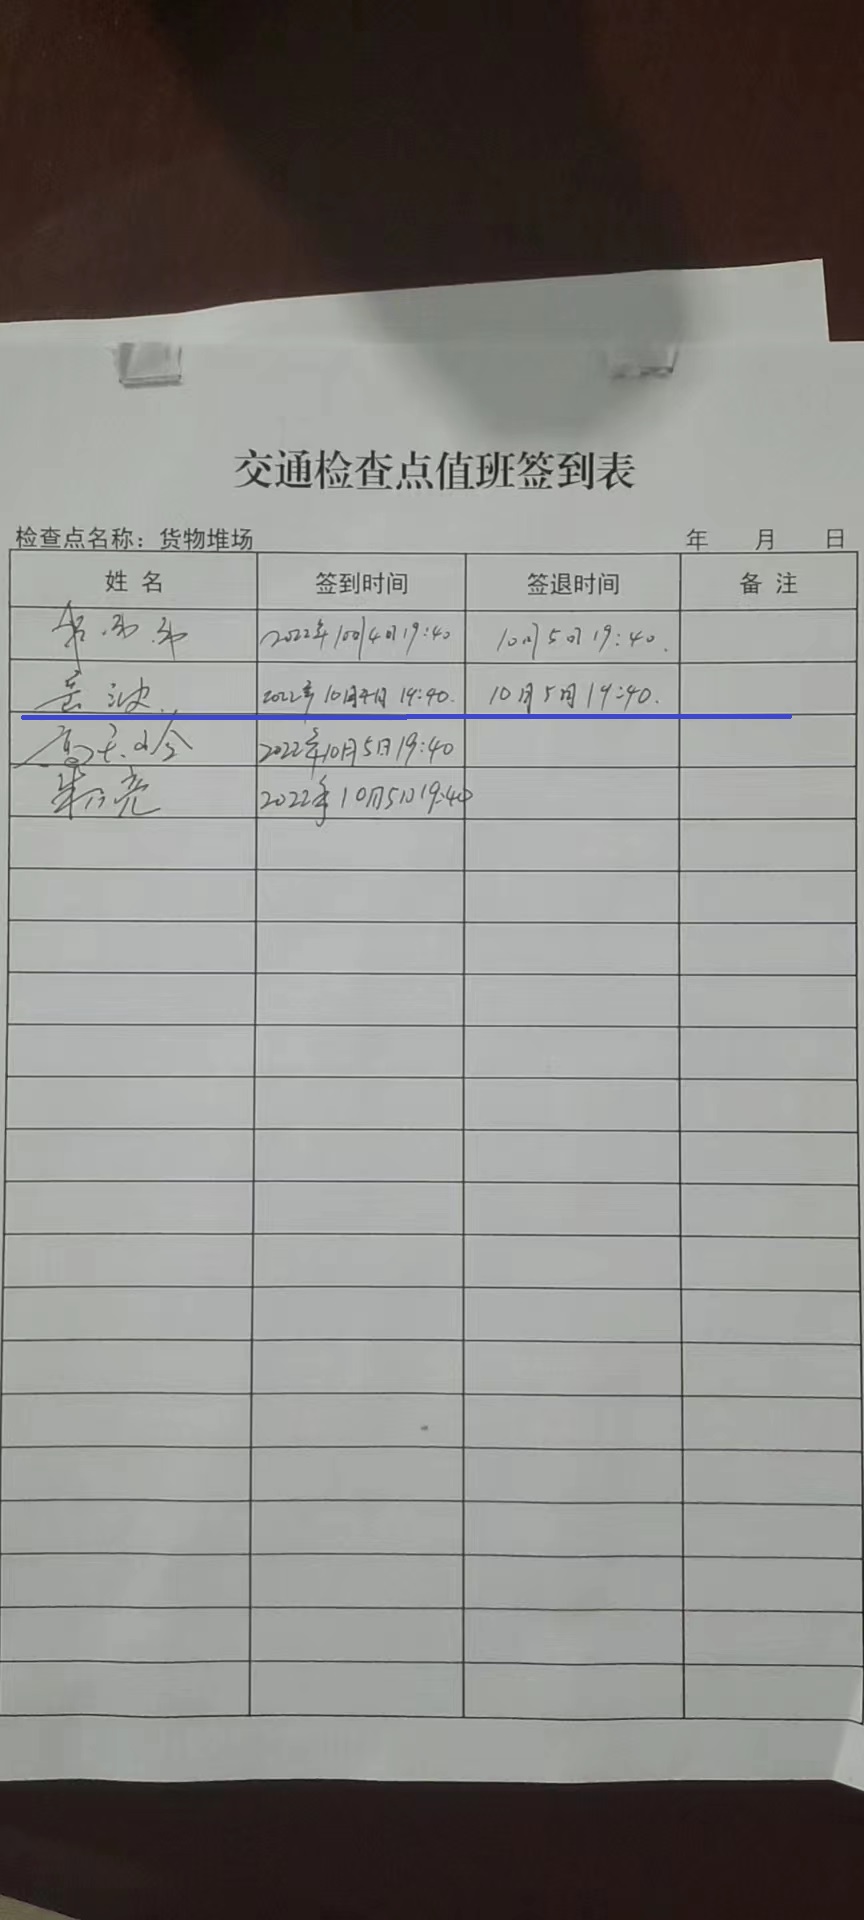 交通检查点值班签到表
检查点名称：货物堆场 年 月 日
姓 名 签到时间 签退时间 备 注
2022年10月4日19:40 10月5日19:40.
波 2022年10月4日 19:40. 10月5日19:40.
高 2022年10月5日19:40
朱 亮 2022年10月5日19:40